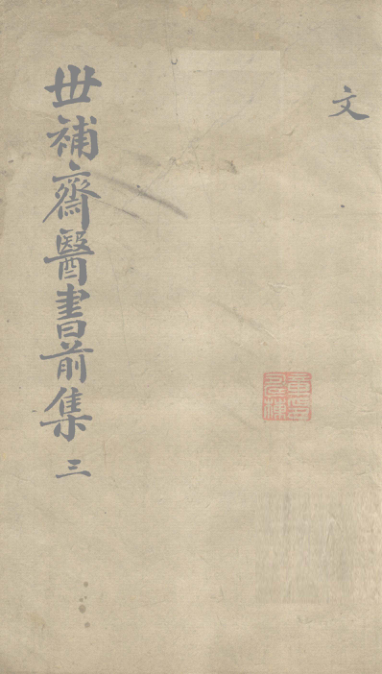 文
世補齋醫書前集 三